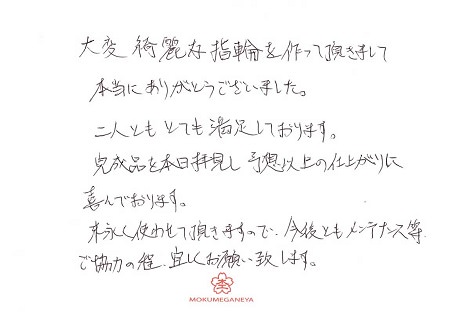 大変 綺麗な指輪を作って頂きまして
本当にありがとうございました。
二人とも とても満足しております。
完成品を本日拝見し 予想以上の仕上がりに
喜んでおります。
末永く使わせて頂きますので、今後ともメンテナンス等
ご協力の程、宜しくお願い致します。
MOKUMEGANEYA